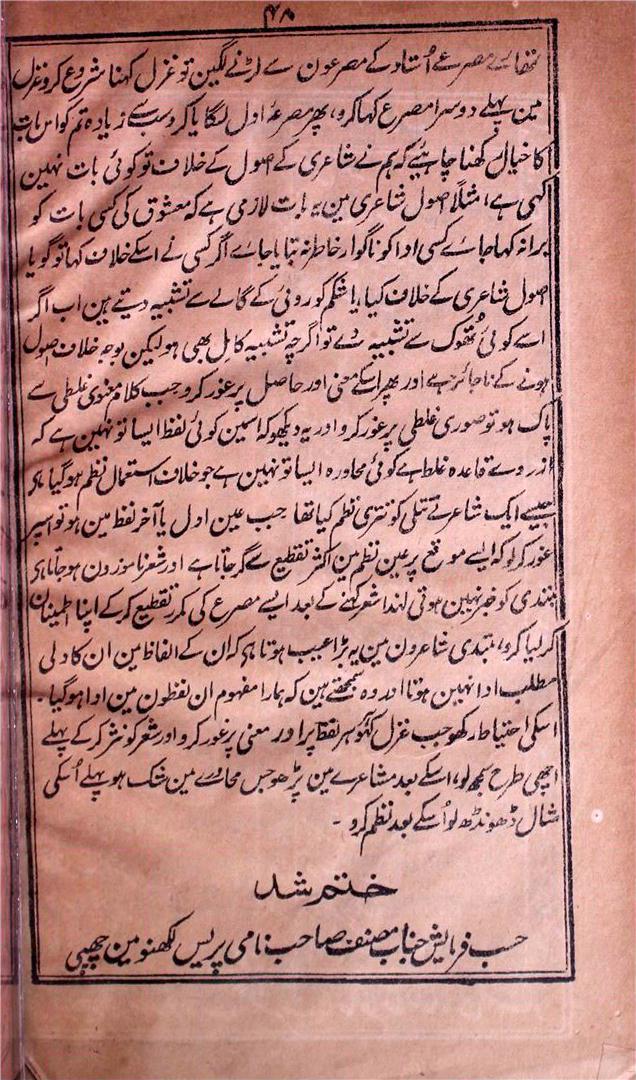 ۴۸
تمھارے مصرعے اُستاد کے مصرعون سے لڑنے لگین تو غزل کہنا شروع کرو غزل
مین پہلے دوسرا مصرع کہا کرو، پھر مصرعۂ اول لگایا کرو سب سے زیادہ تم کو اس بات
کا خیال رکھنا چاہیئے کہ ہم نے شاعری کے اصول کے خلاف تو کوئی بات نہین
کہی ہے، مثلًا اصول شاعری مین یہ بات لازمی ہے کہ معشوق کی کسی بات کو
برا نہ کہا جائے کسی ادا کو ناگوار خاطر نہ بتایا جاے اگر کسی نے اسکے خلاف کہا تو گویا
اصول شاعری کے خلاف کیا، یا شکم کو روئی کے گالے سے تشبیہ دیتے ہین اب اگر
اسے کوئی تھوک سے تشبیہ دے تو اگرچہ تشبیہ کامل بھی ہو لیکن بوجہ خلاف اصول
ہونے کے ناجائز ہے اور پھر اسکے معنی اور حاصل پر غور کرو جب کلام معنوی غلطی سے
پاک ہو تو صوری غلطی پر غور کرو اور یہ دیکھو کہ اسمین کوئی لفظ ایسا تو نہین ہے کہ
ازروے قاعدہ غلط ہے کوئی محاورہ ایسا تو نہین ہے جو خلاف استعمال نظم ہو گیا ہو
جیسے ایک شاعر نے تتلی کو تتری نظم کیا تھا جب عین اول یا آخر لفظ مین ہو تو اسپر
غور کر لو کہ ایسے موقع پر عین نظم مین اکثر تقطیع سے گر جاتا ہے اور شعر ناموزون ہو جاتا ہی
مبتدی کو خبر نہین ہوتی لہذا شعر کہنے کے بعد ایسے مصرع کی مکرر تقطیع کر کے اپنا اطمینان
کر لیا کرو، مبتدی شاعرون مین یہ بڑا عیب ہوتا ہی کہ ان کے الفاظ مین ان کا دلی
مطلب ادا نہین ہوتا اور وہ سمجھتے ہین کہ ہمارا مفہوم ان لفظون مین ادا ہو گیا۔
اسکی احتیاط رکھو جب غزل کہو تو ہر لفظ پر اور معنی پر غور کرو اور شعر کو نثر کر کے پہلے
اچھی طرح سمجھ لو، اسکے بعد مشاعرے مین پڑھو جس محاورے مین شک ہو پہلے اُسکی
مثال ڈھونڈھ لو اُسکے بعد نظم کرو۔
ختم شد
حسب فرمایش جناب مصنف صاحب نامی پریس لکھنو مین چھپی